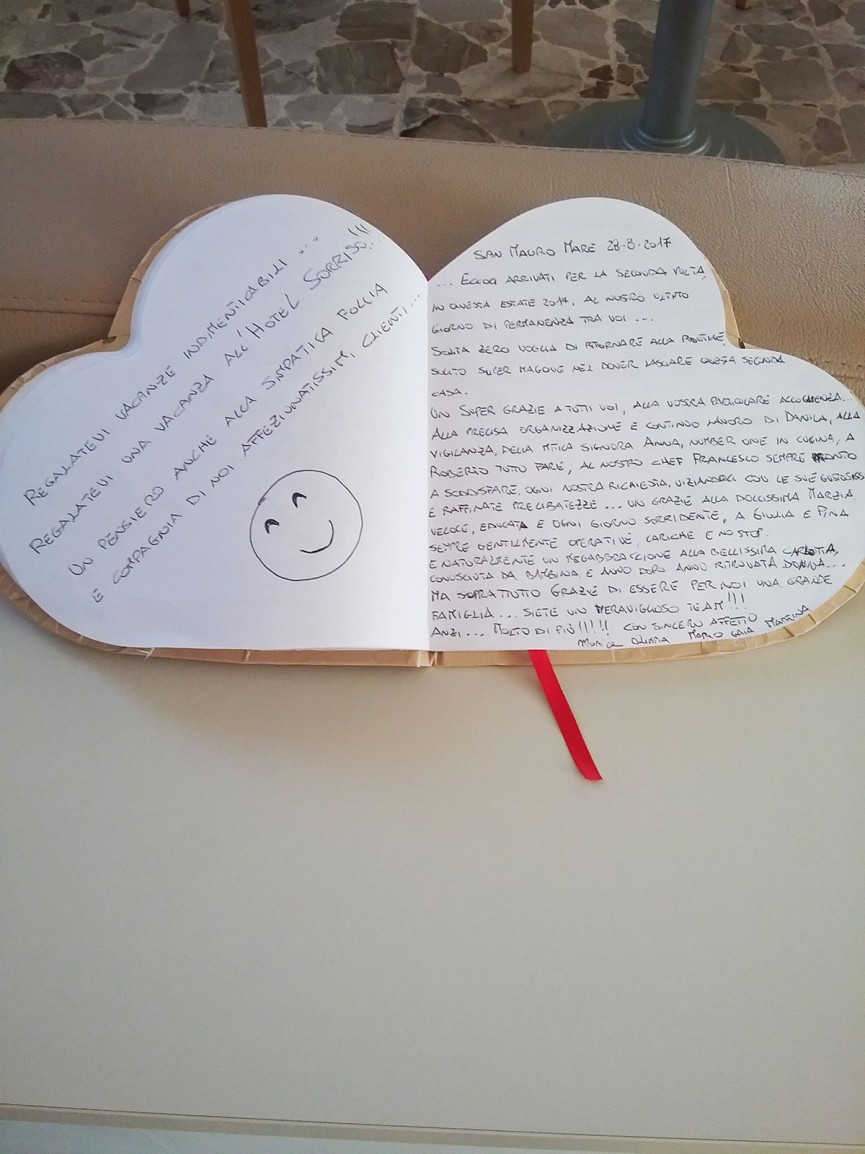 REGALATEVI VACANZE INDIMENTICABILI ...
REGALATEVI UNA VACANZA ALL'HOTEL SORRISO!!!
UN PENSIERO ANCHE ALLA SIMPATICA FOLLIA
E COMPAGNIA DI NOI AFFEZIONATISSIMI CLIENTI...
SAN MAURO MARE 28-8-2017
... ECCOCI ARRIVATI PER LA SECONDA VOLTA,
IN QUESTA ESTATE 2017, AL NOSTRO ULTIMO
GIORNO DI PERMANENZA TRA VOI ...
SOLITA ZERO VOGLIA DI RITORNARE ALLA ROUTINE,
SOLITO SUPER MAGONE NEL DOVER LASCIARE QUESTA SECONDA
CASA.
UN SUPER GRAZIE A TUTTI VOI, ALLA VOSTRA PARTICOLARE ACCOGLIENZA...
ALLA PRECISA ORGANIZZAZIONE E CONTINUO LAVORO DI DANILA, ALLA
VIGILANZA, DELLA MITICA SIGNORA ANNA, NUMBER ONE IN CUCINA, A
ROBERTO TUTTO FARE, AL NOSTRO CHEF FRANCESCO SEMPRE PRONTO
A SODDISFARE, OGNI NOSTRA RICHIESTA, VIZIANDOCI CON LE SUE GUSTOSISS
E RAFFINATE PRELIBATEZZE ... UN GRAZIE ALLA DOLCISSIMA MARZIA
VELOCE, EDUCATA E OGNI GIORNO SORRIDENTE, A GIULIA E PINA
SEMPRE GENTILMENTE OPERATIVE, CARICHE E NO STOP.
E NATURALMENTE UN MEGABBRACCIONE ALLA BELLISSIMA CARLOTTA,
CONOSCIUTA DA BAMBINA E ANNO DOPO ANNO RITROVATA DONNA...
MA SOPRATTUTTO GRAZIE DI ESSERE PER NOI UNA GRANDE
FAMIGLIA ... SIETE UN MERAVIGLIOSO TEAM!!!
ANZI ... MOLTO DI PIÙ!!!! CON SINCERO AFFETTO
MARIO GAIA